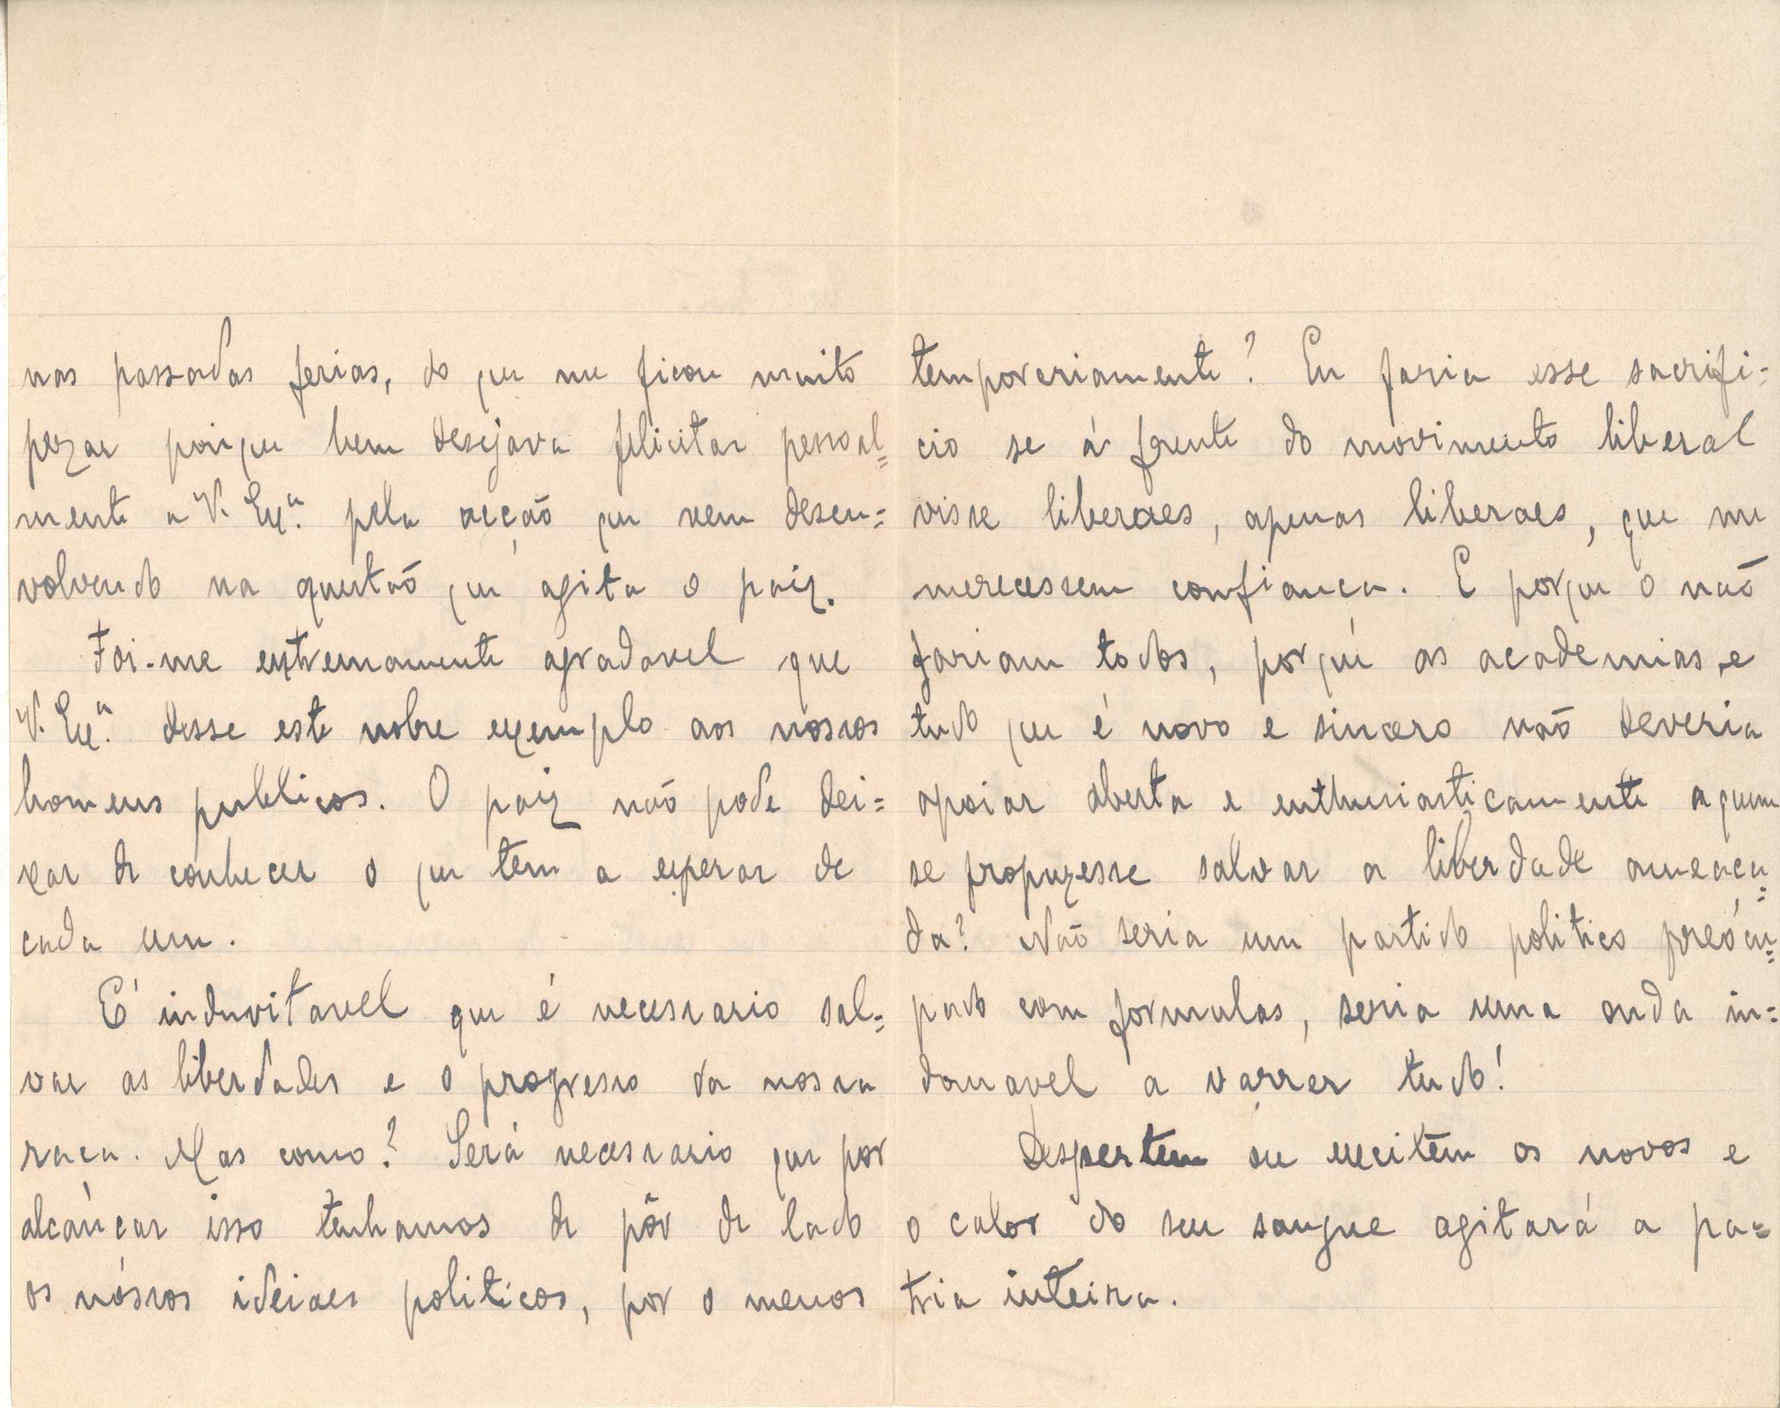 nas passadas ferias, do que me ficou muito
pezar porque bem desejava felicitar pessoal=
mente a V. Exª. pela acção que vem desen=
volvendo na questão que agita o paiz.
Foi-me extremamente agradavel que
V. Exª. desse este nobre exemplo aos nossos
homens publicos. O paiz não pode dei=
xar de conhecer o que tem a esperar de
cada um.
É induvitavel que é necessario sal=
var as liberdades e o progresso da nossa
raça. Mas como? Será necessario que por
alcançar isso tenhamos de pôr de lado
os nóssos ideiaes politicos, por o menos
temporeriamente? Eu faria esse sacrifi=
cio se á frente do movimento liberal
visse liberaes, apenas liberaes, que me
merecessem confiança. E porque o não
fariam todos, porque as academias e
tudo que é novo e sincero não deveria
apoiar aberta e enthusiasticamente a quem
se propuzesse salvar a liberdade ameaça=
da? Não seria um partido politico preócu=
pado com formulas, seria uma onda in=
domavel a varrer tudo!
Despertem ou excitem os novos e
o calor do seu sangue agitará a pa=
tria inteira.